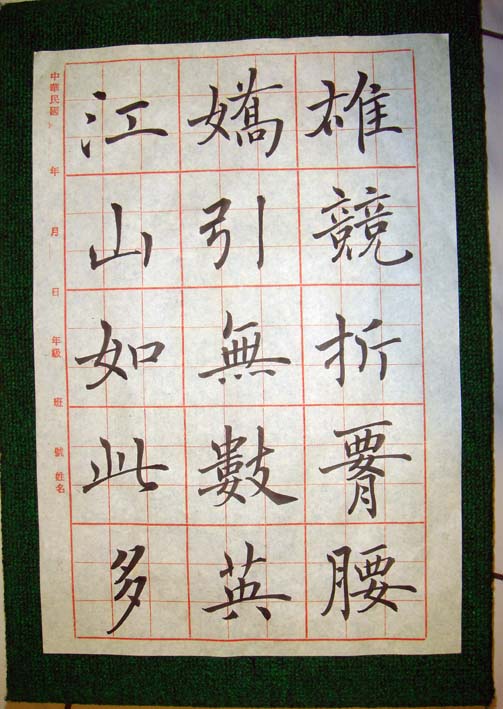 中華民國 年 月 日 年級 班 號 姓名
江山如此多
嬌引無數英
雄競折腰